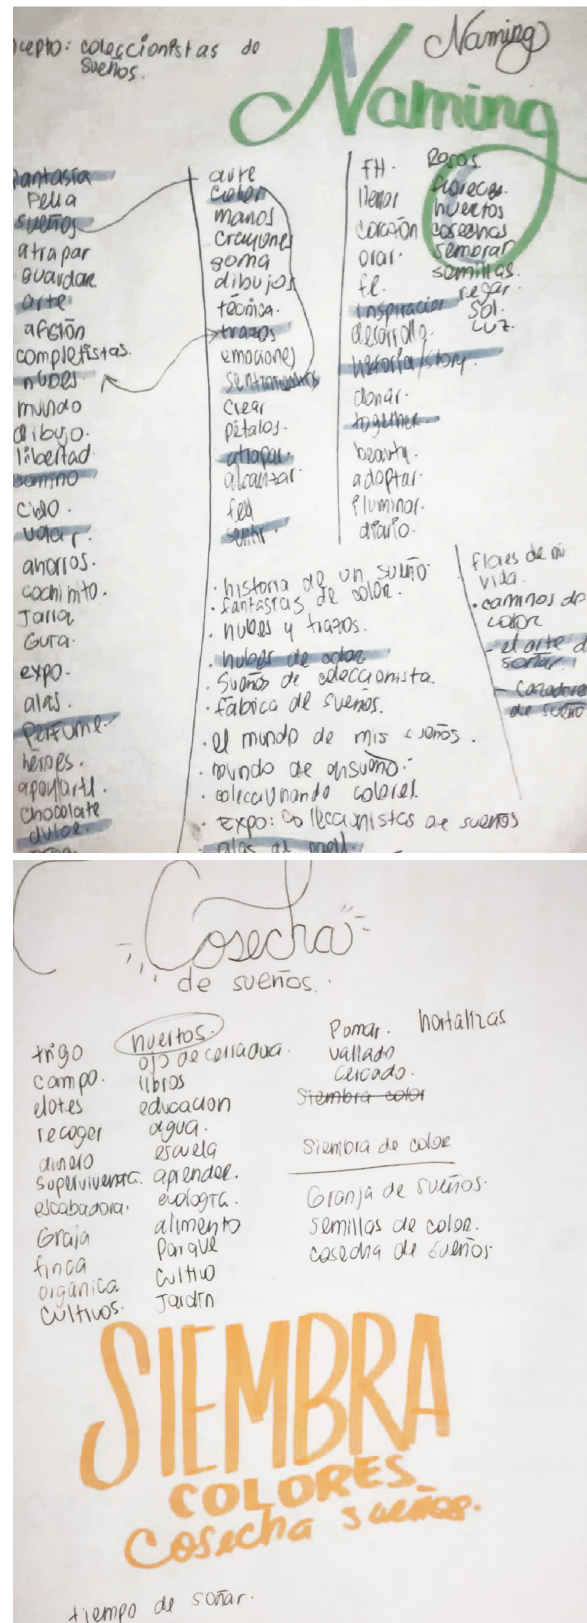 cepto: coleccionistas de
sueños.
Naming
Naming
Fantasía
Pella
sueños
atrapar
guardar
arte
afición
completistas.
nubes
mundo
dibujo.
libertad
camino
cielo
volar.
ahorros.
cochinito.
Jarra
Gura.
expo.
alas.
Perfume.
heroes.
apoyarte.
chocolate
dulce.
arte
color
manos
crayones
goma
dibujos
técnica.
trazos
emociones
sentimientos
crear
pétalos.
atrapar.
alcanzar.
feel
sentir.
FH.
llenar
corazón
orar.
fe.
inspiración
desarrollo.
historia/story.
donar.
together.
beauty.
adoptar.
iluminar.
diario.
Rosas
florecer.
huertos
cosechas
sembrar
semillas.
regar.
Sol.
Luz.
· historia de un sueño.
· fantasías de color.
· nubes y trazos.
· nubes de color
· Sueños de coleccionista.
· fabrica de sueños.
· el mundo de mis sueños.
· mundo de ensueño.
· coleccionando colores.
· Expo: colleccionistas de sueños
alas de
flores de mi
vida.
· caminos de
color
- el arte d
soñar
- cazadores
de sueño
Cosecha
de sueños.
trigo
campo.
elotes
recoger
dinero
supervivencia.
escabadora.
Graja
finca
organica
cultivos.
huertos.
ojo de cerradura.
libros
educacion
agua.
escuela
aprender.
ecología.
alimento
Parque
Cultivo
Jardín
Pomar.
vallado
cercado.
Siembra color
hortalizas
Siembra de color
Granja de sueños.
semillas de color.
cosecha de sueños
SIEMBRA
COLORES
Cosecha sueños.
tiempo de soñar.